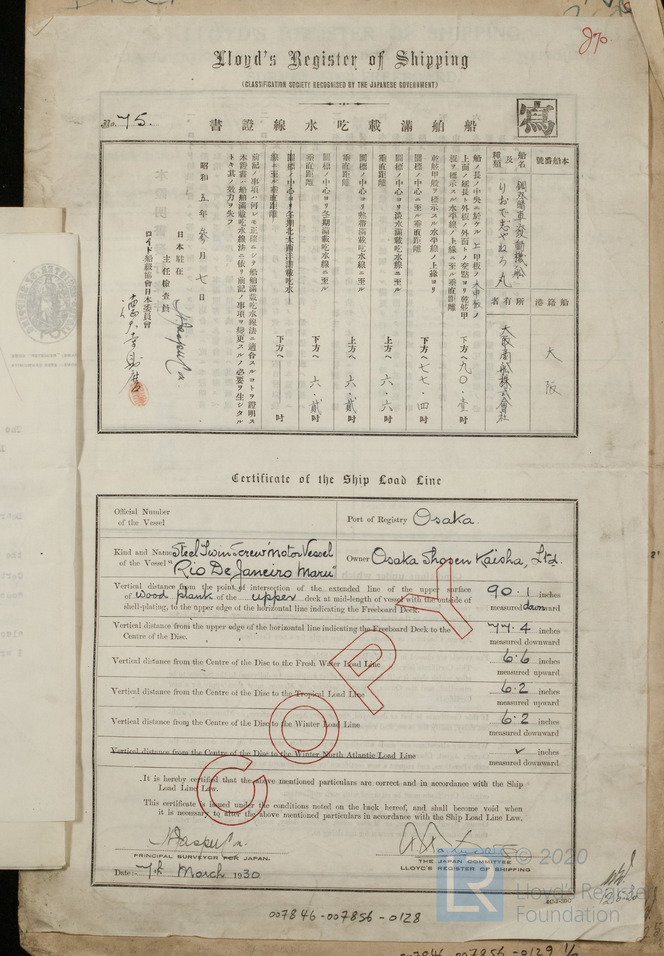 870
Lloyd's Register of Shipping
(CLASSIFICATION SOCIETY RECOGNISED BY THE JAPANESE GOVERNMENT)
No. 75.
書證線水吃載滿舶船
寫
號番船本
船名及種類
りおで志やねろ丸
港籍船
大阪
名有所
大阪商船株式會社
下方ヘ 九〇·壹 吋
下方ヘ 七七·四 吋
圓標ノ中心ヨリ淡水滿載吃水線ニ至ル垂直距離 上方ヘ 六·六 吋
圓標ノ中心ヨリ熱帶滿載吃水線ニ至ル垂直距離 上方ヘ 六·貳 吋
圓標ノ中心ヨリ冬期滿載吃水線ニ至ル垂直距離 下方ヘ 六·貳 吋
圓標ノ中心ヨリ冬期北大西洋滿載吃水線ニ至ル垂直距離 下方ヘ 吋
前記ノ事項ハ何レモ正確ニシテ船舶滿載吃水線法ニ適合スルコトヲ證明ス
昭和五年參月七日
日本駐在
主任檢査員
ロイド船級協會日本委員會
Certificate of the Ship Load Line
Official Number
of the Vessel
Port of Registry Osaka.
Kind and Name Steel Twin Screw Motor Vessel
of the Vessel "Rio De Janeiro Maru"
Owner Osaka Shosen Kaisha, Ltd.
Vertical distance from the point of intersection of the extended line of the upper surface
of wood plank of the upper deck at mid-length of vessel with the outside of
shell-plating, to the upper edge of the horizontal line indicating the Freeboard Deck.
90.1 inches
measured downward
Vertical distance from the upper edge of the horizontal line indicating the Freeboard Deck to the
Centre of the Disc.
77.4 inches
measured downward
Vertical distance from the Centre of the Disc to the Fresh Water Load Line
6.6 inches
measured upward
Vertical distance from the Centre of the Disc to the Tropical Load Line
6.2 inches
measured upward
Vertical distance from the Centre of the Disc to the Winter Load Line
6.2 inches
measured downward
Vertical distance from the Centre of the Disc to the Winter North Atlantic Load Line
✓ inches
measured downward
COPY
It is hereby certified that the above mentioned particulars are correct and in accordance with the Ship
Load Line Law.
This certificate is issued under the conditions noted on the back hereof, and shall become void when
it is necessary to alter the above mentioned particulars in accordance with the Ship Load Line Law.
PRINCIPAL SURVEYOR FOR JAPAN.
THE JAPAN COMMITTEE
LLOYD'S REGISTER OF SHIPPING
Date:- 7th March 1930
© 2020
Lloyd's Register
Foundation
LR
007846-007856-0128
007846-007856-0129 1/